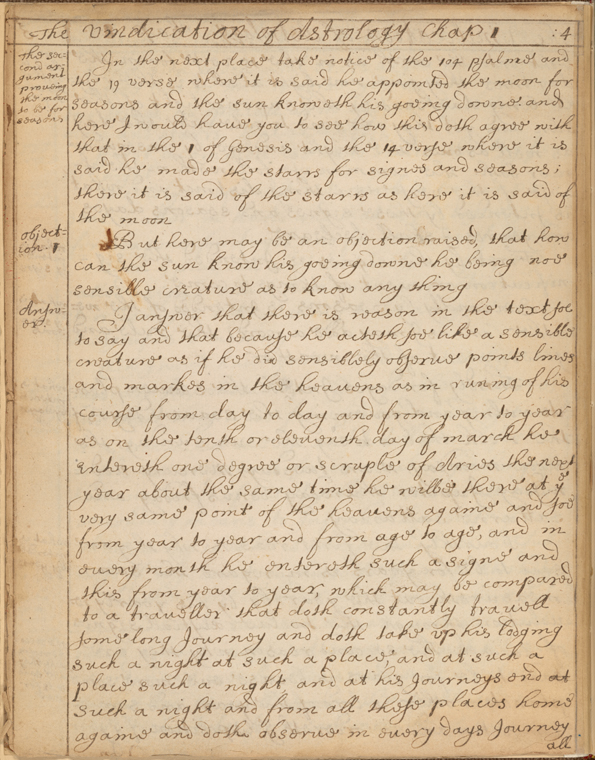 The vindication of Astrology Chap 1 :4
The sec=
cond ar=
gument
proveing
the moon
to be for
seasons
In the next place take notice of the 104 psalme and
the 19 verse where it is said he appointed the moon for
seasons and the sun knoweth his goeing downe and
here I would have you to see how this doth agree with
that in the 1 of Genesis and the 14 verse where it is
said he made the starrs for signes and seasons;
there it is said of the starrs as here it is said of
the moon
object=
ion. 1
But here may be an objection raised, that how
can the sun know his goeing downe he being noe
sensible creature as to know any thing
Answ=
er.
I answer that there is reason in the text soe
to say and that because he acteth soe like a sensible
creature as if he did sensiblely observe points lines
and markes in the heavens as in runing of his
course from day to day and from year to year
as on the tenth or eleventh day of march he
Entereth one degree or scruple of Aries the next
year about the same time he wilbe there at ye
very same point of the heavens againe and soe
from year to year and from age to age, and in
every month he entereth such a signe and
this from year to year, which may be compared
to a traveller that doth constantly travell
some long Journey and doth take up his lodging
such a night at such a place, and at such a
place such a night and at his Journeys end at
such a night and from all these places home
againe and doth observe in every days Journey
all